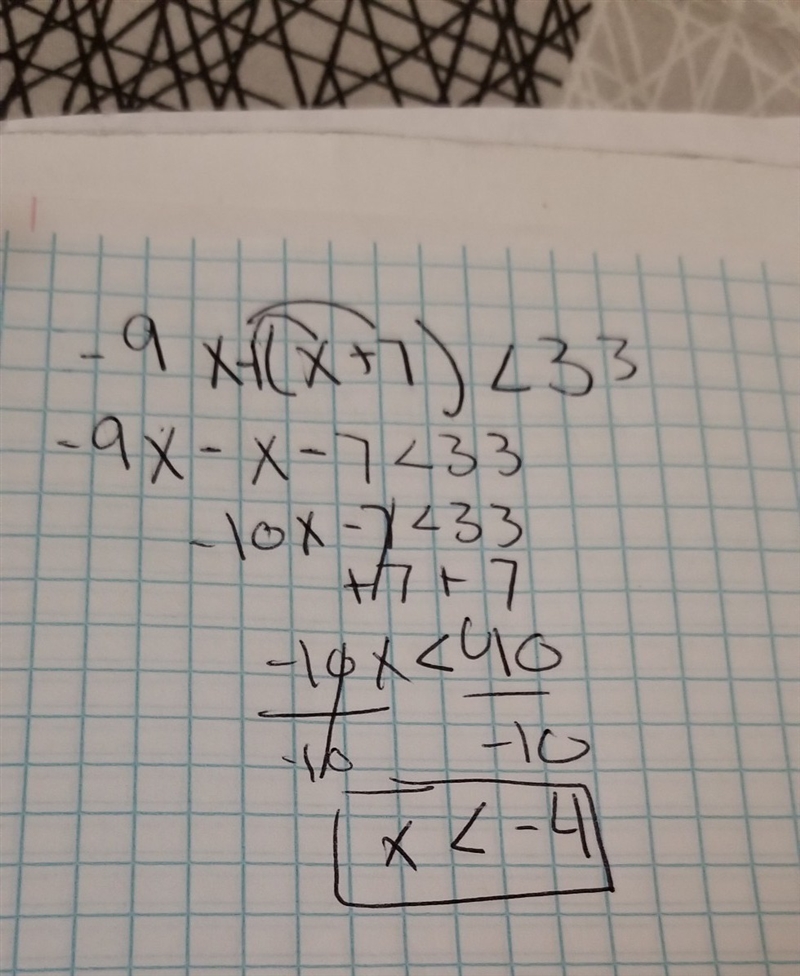 -9x-1(x+7)<33
-9x-x-7<33
-10x-7<33
+7+7
-10x<40
-10 -10
x<-4